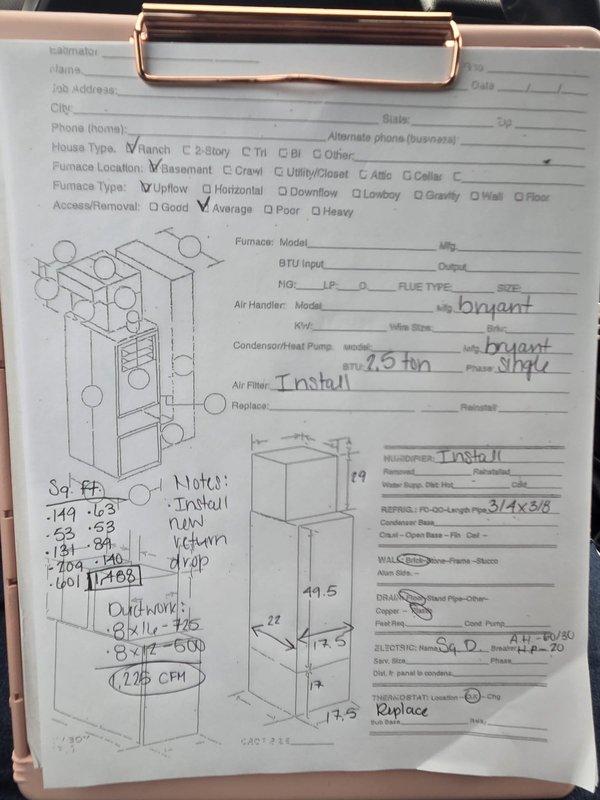 Estimator
Name
Job Address:
Date / /
City:
State:
Zip
Phone (home):
Alternate phone (business):
House Type. Ranch 2-Story Tri Bi Other:
Furnace Location: Basement Crawl Utility/Closet Attic Cellar
Furnace Type: Upflow Horizontal Downflow Lowboy Gravity Wall Floor
Access/Removal: Good Average Poor Heavy
Furnace: Model Mfg.
BTU Input Output
NG: LP: O. FLUE TYPE: SIZE:
Air Handler: Model Mfg. bryant
KW: Wire Size: Brkr:
Condensor/Heat Pump. Model: Mfg. bryant
BTU: 2.5 ton Phase: Single
Air Filter: Install
Replace: Reinstall
Sq. Ft.
.149 .63
.53 .53
.131 .89
.209 .140
.601 1,488
Notes:
· Install
new
return
drop
Ductwork:
· 8x16 - 725
· 8x12 - 500
1,225 CFM
29
49.5
22
17.5
17
17.5
HUMIDIFIER: Install
Removed Reinstalled
Water Supp. Dist: Hot Cold
REFRIG.: FC-QC-Length Pipe 3/4x3/8
Condenser Base
Crawl - Open Base - Fin Ceil -
WALL: Brick-Stone-Frame-Stucco
Alum Side. -
DRAIN: Floor-Stand Pipe-Other-
Copper - Plastic
Feet Req. Cond. Pump
ELECTRIC: Name Sq D. Breaker A.H. - 60/30
H.P. - 20
Serv. Size Phase
Dist. fr. panel to condens.
THERMOSTAT: Location - O.K. - Chg.
Replace
Sub Base